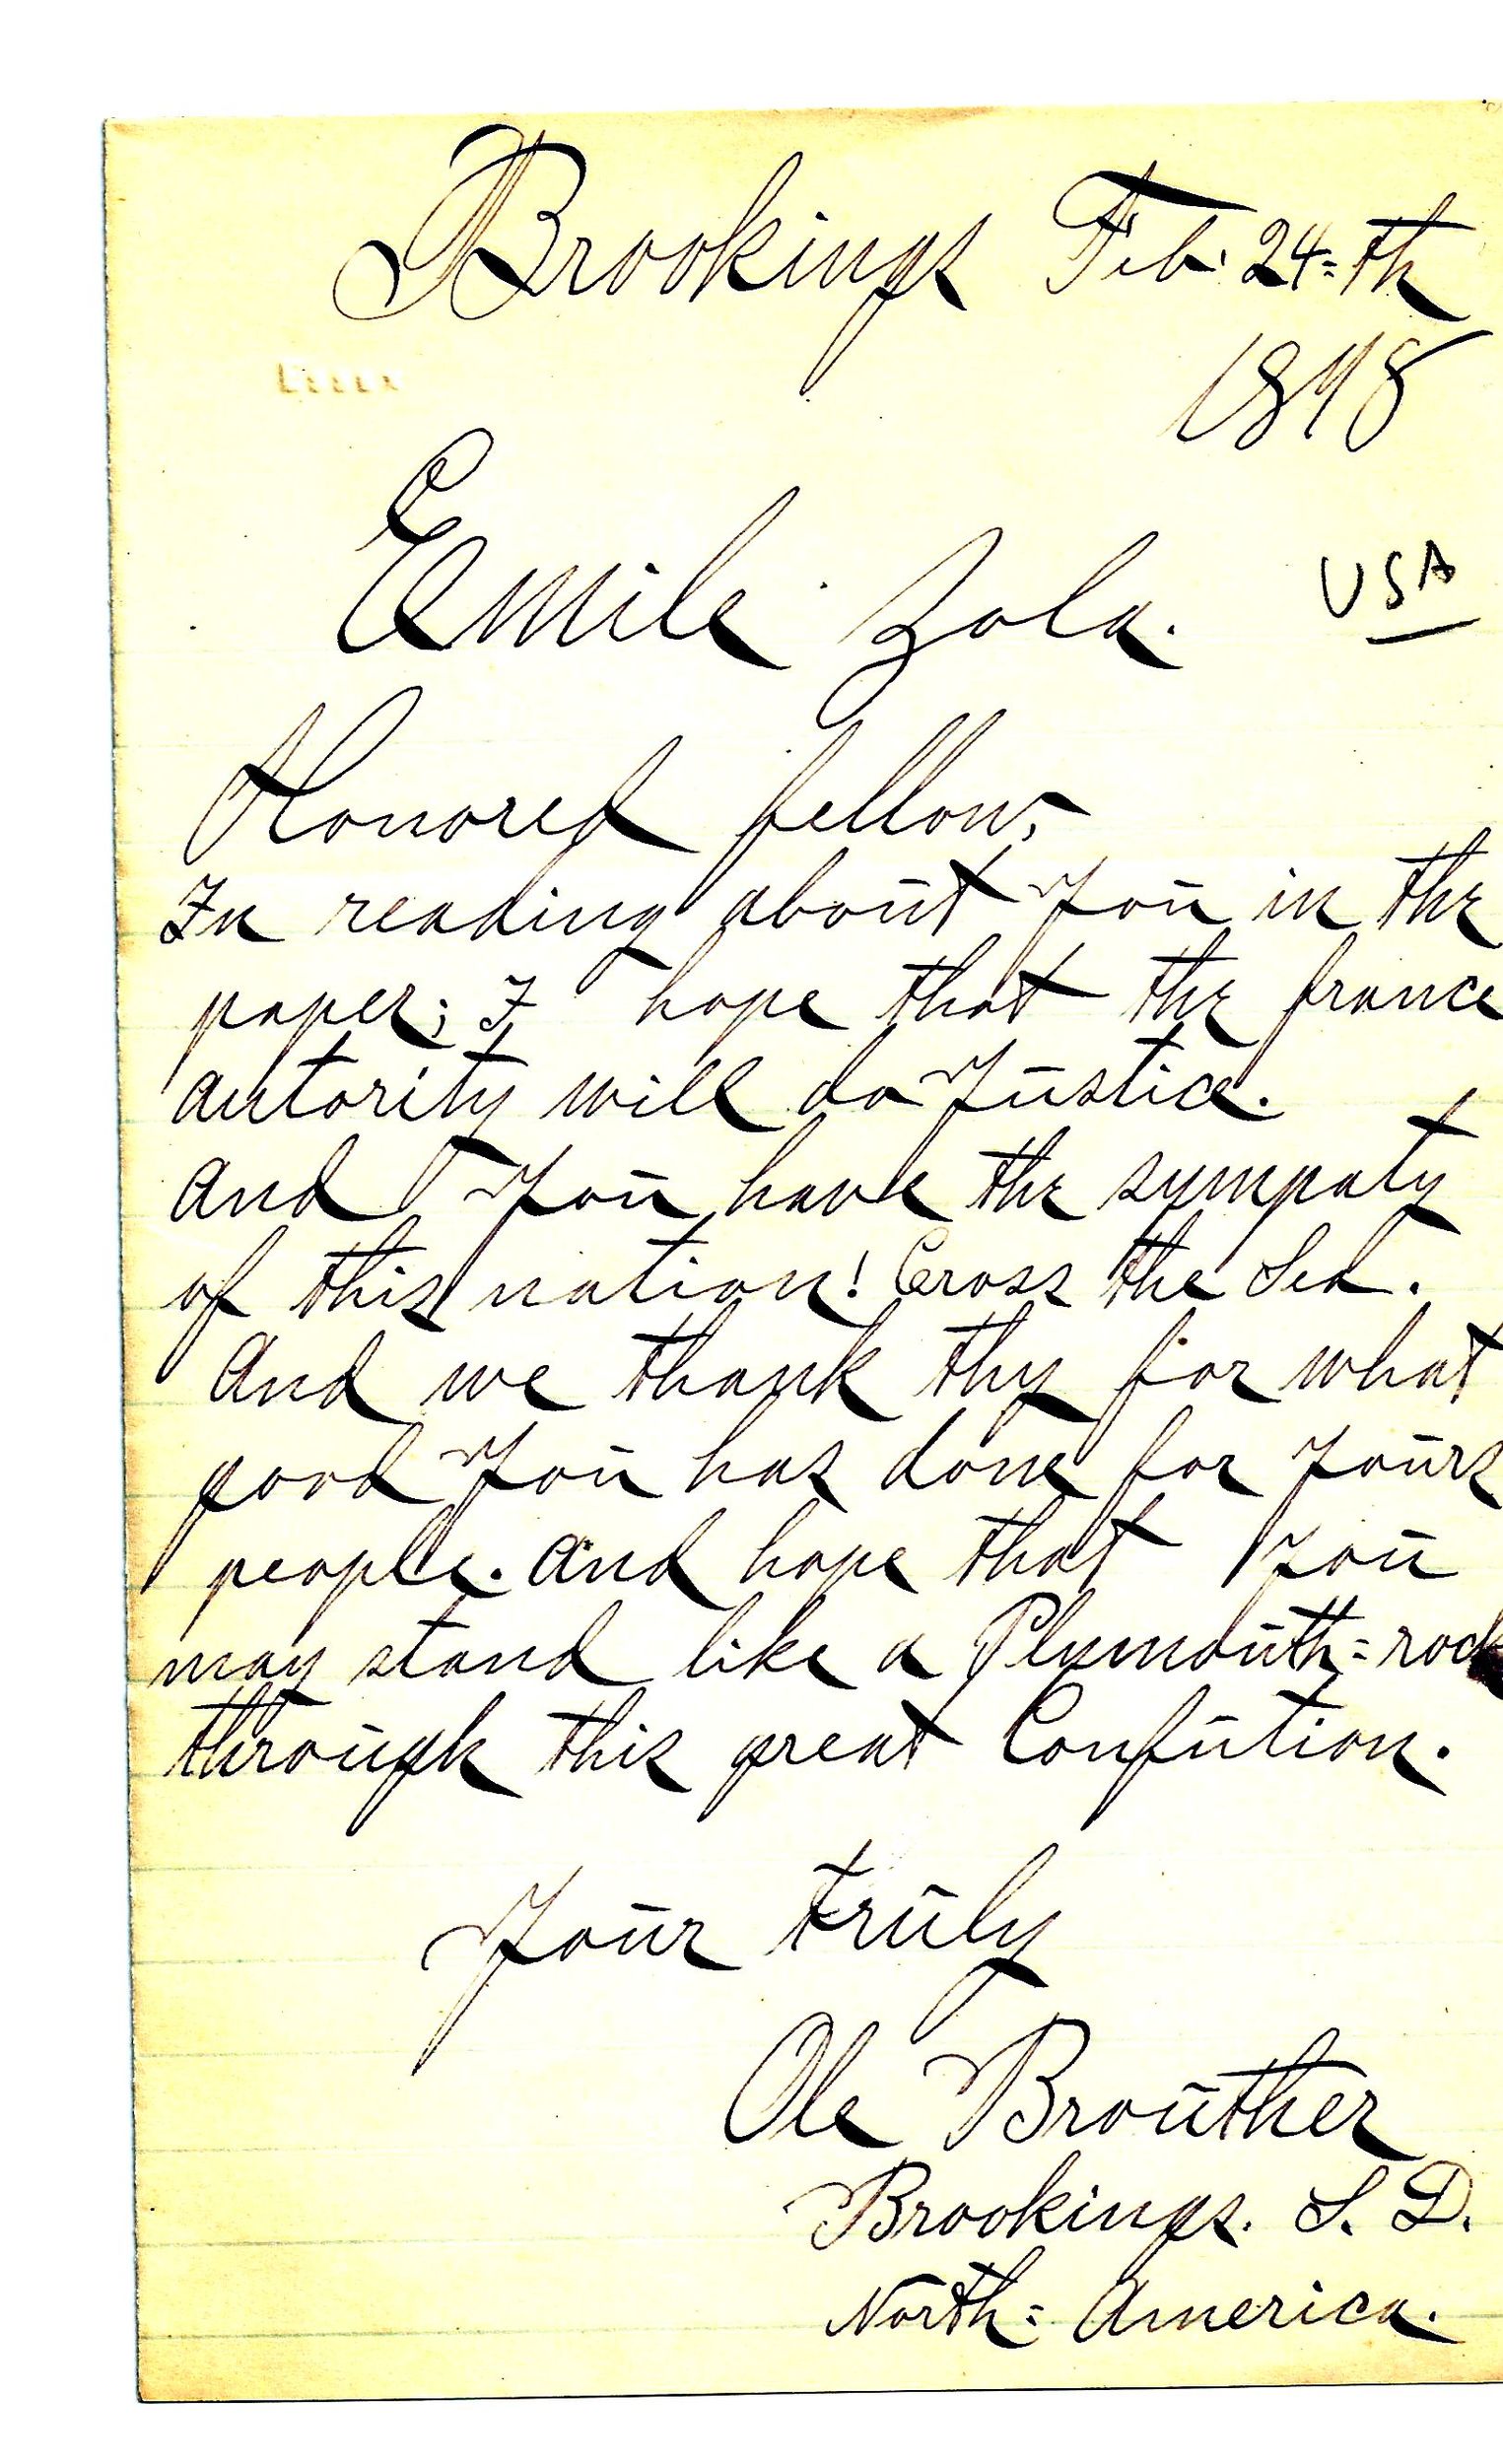 Brookings Feb. 24=th
1898
Emile Zola.
USA
Honored fellow,
In reading about You in the
paper; I hope that the france
autority will do Justice.
And You have the sympaty
of this nation! Cross the Sea.
And we thank thy for what
good You has done for Yours
people. And hope that You
may stand like a Plymouth=rock
through this great Confution.
Your truly
Ole Brouther
Brookings. S. D.
North= America.